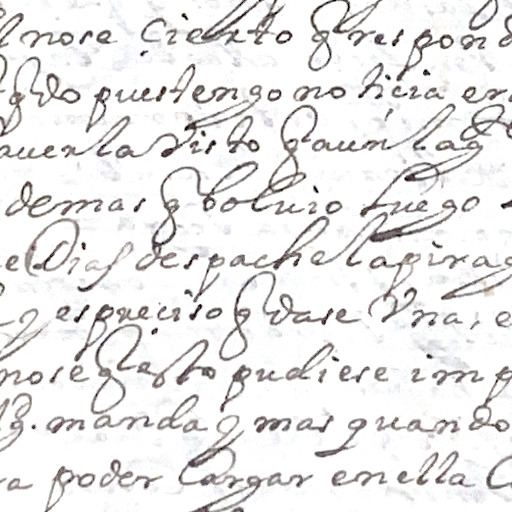 nose Cierto q̃ respond
q̃do pues tengo noticia en
auerla Visto q̃ aun la q̃
demas q̃ boluio luego
e Dias despache la pirag
y es preciso q̃dase Vna, e
nose q̃ esto pudiese imp
manda y mas quando
a poder Cargar en ella C